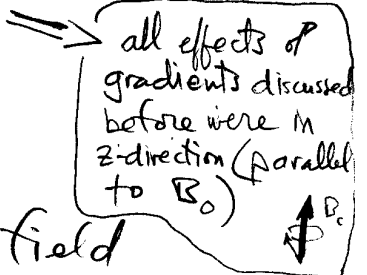 all effects of
gradients discussed
before were in
z-direction (parallel
to B₀)
B₀
field